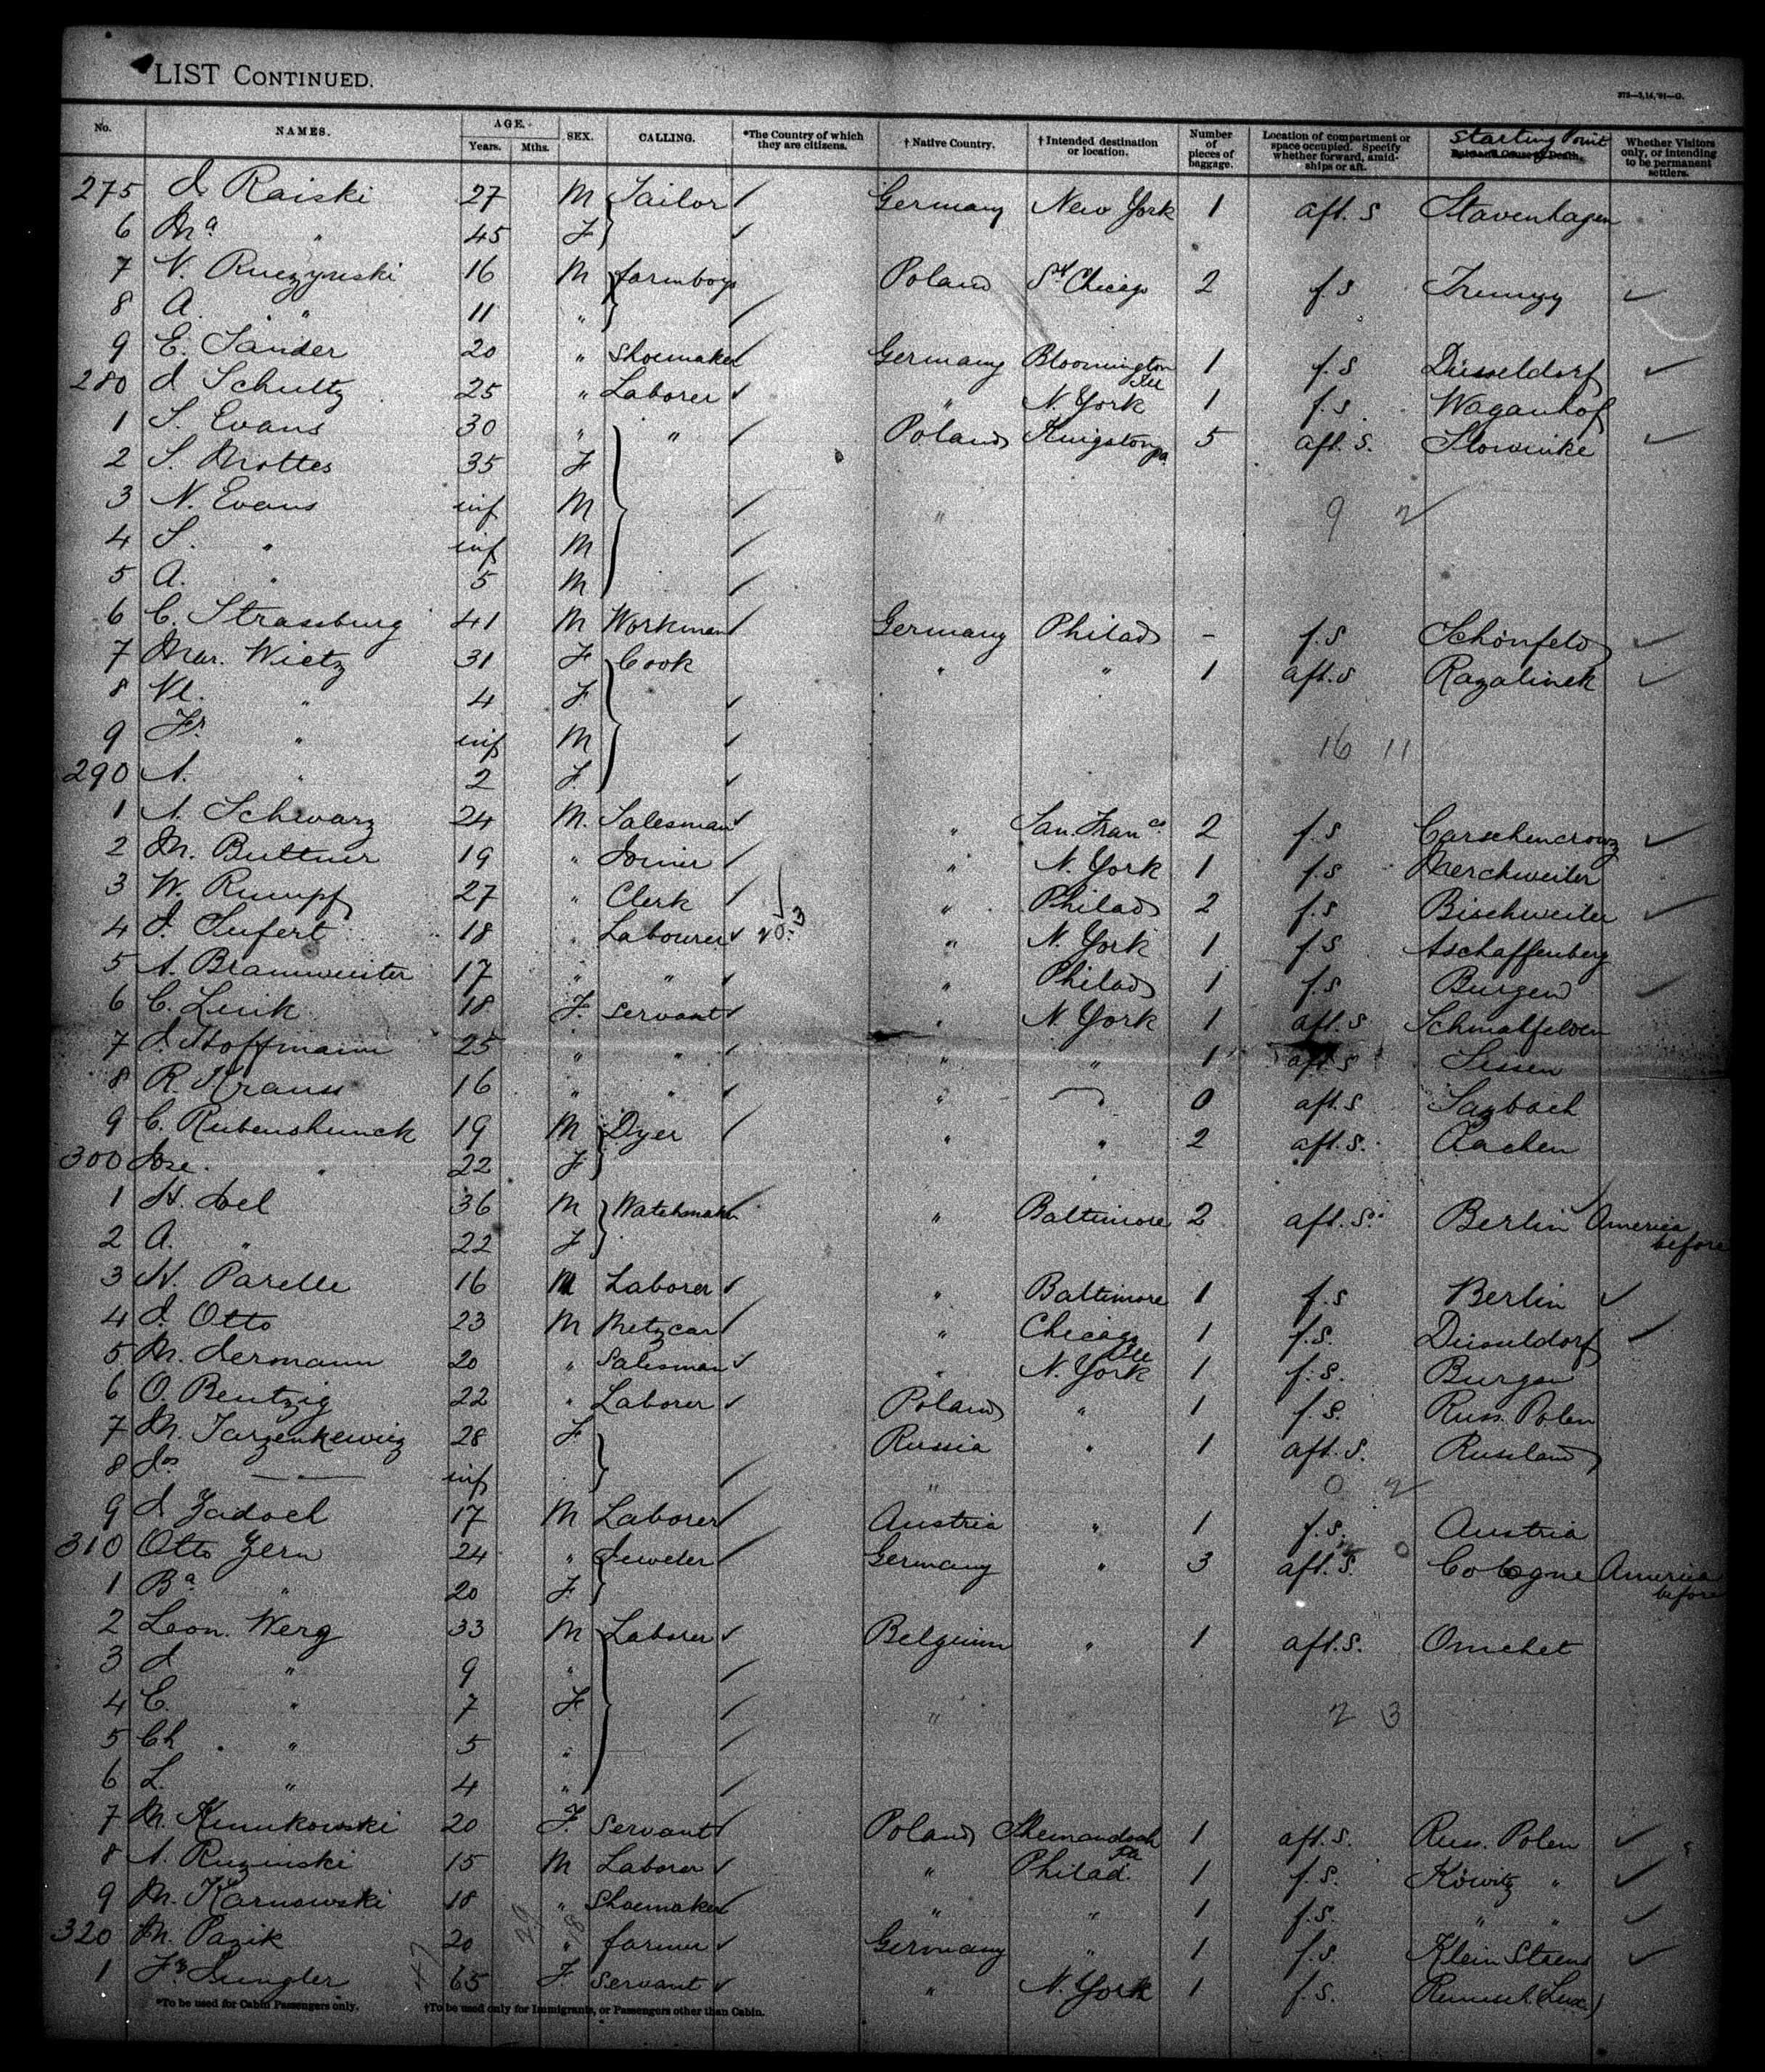 LIST CONTINUED.
272—3,14,'91—G.
No. NAMES. AGE. Years. Mths. SEX. CALLING. *The Country of which they are citizens. † Native Country. † Intended destination or location. Number of pieces of baggage. Location of compartment or space occupied. Specify whether forward, amidships or aft. Starting Point Date and Cause of Death. Whether Visitors only, or intending to be permanent settlers.
275 J Raiski 27 M Tailor Germany New York 1 aft. S Stavenhagen
6 Ma " 45 F
7 V. Ruczynski 16 M farmboys Poland Chicago 2 f. S
8 A. " 11 "
9 E. Sander 20 " Shoemaker Germany Bloomington Ill 1 f. S Düsseldorf
280 J Schultz 25 " Laborer " N. York 1 f. S Waganhof
1 S. Evans 30 " " Poland Kingston Pa 5 aft. S. Slowinke
2 S. Mottes 35 F
3 N. Evans inf M " 9 2
4 S. " inf M
5 A. " 5 M
6 C. Strassburg 41 M Workman Germany Philad - f. S Schönfeld
7 Mar. Wietz 31 F Cook " " 1 aft. S Razalinek
8 Vl. " 4 F
9 Fr. " inf M 16 11
290 A. " 2 F.
1 A. Schwarz 24 M. Salesman " San. Franco. 2 f. S
2 M. Buttner 19 " Joiner " N. York 1 f. S Merchweiler
3 W. Rumpf 27 " Clerk " Philad 2 f. S Bischweiler
4 J. Seufert 18 " Labourer " N. York 1 f. S Aschaffenberg
5 A. Bramweister 17 " " " Philad 1 f. S Burgen
6 C. Link 18 F. servant " N. York 1 aft. S Schmalfelden
7 J. Hoffmann 25 " " " " 1 aft. S Sessen
8 R. Krauss 16 " " " 0 aft. S Sasbach
9 C. Rubenshunck 19 M Dyer " " 2 aft. S. Aachen
300 Jose. " 22 F
1 H. Joel 36 M Watchmaker " Baltimore 2 aft. S. Berlin America before
2 A. " 22 F
3 H. Parelle 16 M Laborer " Baltimore 1 f. S Berlin
4 J. Otto 23 M Metzcar " Chicago Ill 1 f. S. Düsseldorf
5 M. Lermann 20 " Salesman " N. York 1 f. S. Burgau
6 O. Bentzig 22 " Laborer Poland " 1 f. S. Russ. Polen
7 M. Jarzenkewicz 28 F Russia " 1 aft. S. Russland
8 Jos — " — inf " 0 2
9 J Zadoel 17 M Laborer Austria " 1 f. S. Austria
310 Otto Zern 24 " Jeweler Germany " 3 aft. S. Cologne America before
1 Ba " 20 F
2 Leon. Werg 33 M Laborer Belgium " 1 aft. S. Omchet
3 J " 9 "
4 C. " 7 F " 2 3
5 Ch " 5 "
6 L. " 4 "
7 M. Kunukowski 20 F. Servant Poland Shenandoah Pa 1 aft. S. Russ. Polen
8 A. Ruzinski 15 M Laborer " Philad. 1 f. S. Kowitz "
9 M. Karnowski 18 " Shoemaker " " 1 f. S. " "
320 M. Pazik 20 " farmer Germany " 1 f. S. Klein
1 Fz Lungler 65 F. Servant " N. York 1 f. S.
*To be used for Cabin Passengers only. †To be used only for Immigrants, or Passengers other than Cabin.